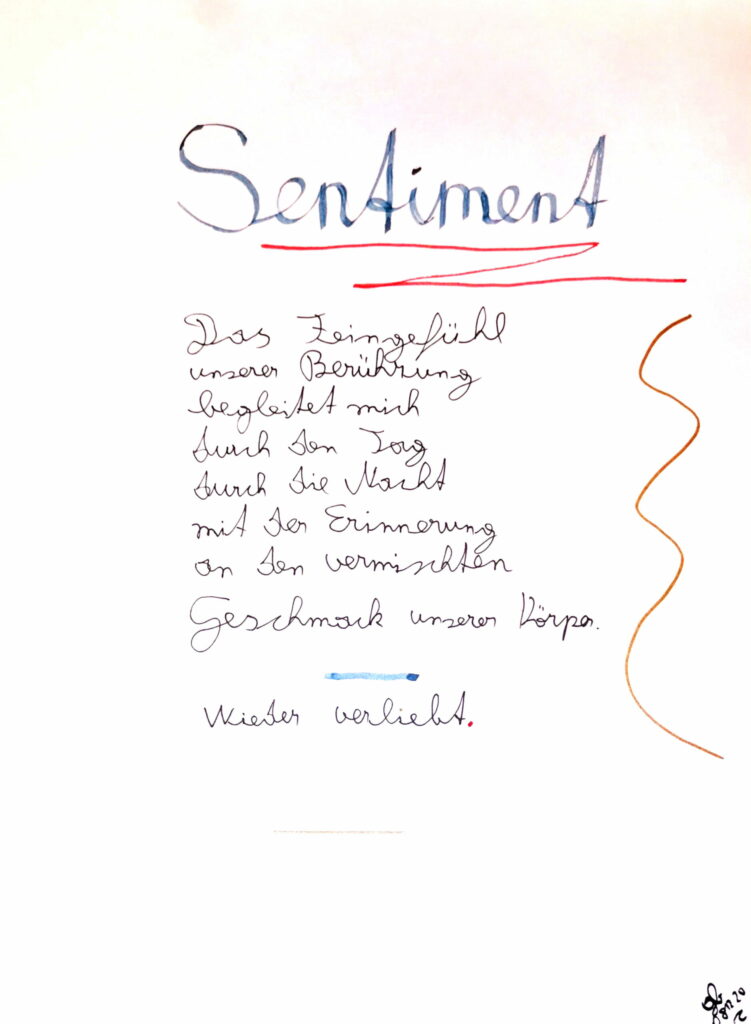 Sentiment
Das Feingefühl
unserer Berührung
begleitet mich
durch den Tag
durch die Nacht
mit der Erinnerung
an den vermischten
Geschmack unserer Körper.
Wieder verliebt.